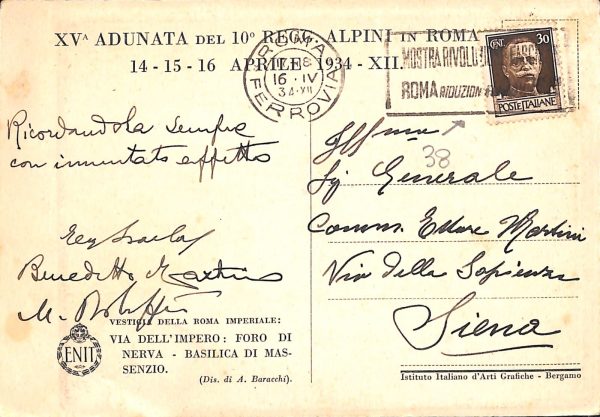 XVᴬ ADUNATA DEL 10º REGG. ALPINI IN ROMA
14 - 15 - 16 APRILE 1934 - XII.
ROMA
16·IV
34·XII
FERROVIA
MOSTRA RIVOLU
ROMA RIDUZION
CENT. 30
POSTE ITALIANE
Ricordandola sempre
con immutato affetto
Benedetto Martino
M.
Ill mo
38
Sig Generale
Comm. Ettore Martini
Via della Sapienza
Siena
VESTIGIA DELLA ROMA IMPERIALE:
VIA DELL'IMPERO: FORO DI
NERVA - BASILICA DI MAS-
SENZIO.
(Dis. di A. Baracchi).
ENIT
Istituto Italiano d'Arti Grafiche - Bergamo